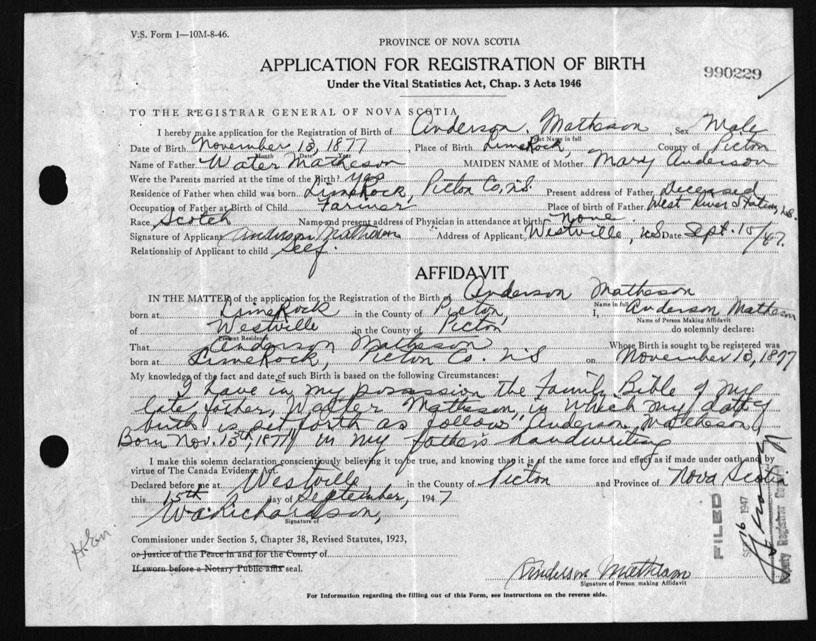 V.S. Form 1—10M-8-46.
PROVINCE OF NOVA SCOTIA
APPLICATION FOR REGISTRATION OF BIRTH
990229
Under the Vital Statistics Act, Chap. 3 Acts 1946
TO THE REGISTRAR GENERAL OF NOVA SCOTIA
I hereby make application for the Registration of Birth of Anderson Matheson Sex Male
Name in full
Date of Birth November 13, 1877, Place of Birth LimeRock, County of Picton
Month Date Year
Name of Father Water Matheson MAIDEN NAME of Mother Mary Anderson
Were the Parents married at the time of the Birth? yes
Residence of Father when child was born LimeRock, Picton Co, N.S. Present address of Father deceased
Occupation of Father at Birth of Child Farmer Place of birth of Father West River Station, N.S.
Race Scotch Name and present address of Physician in attendance at birth None
Signature of Applicant Anderson Matheson Address of Applicant Westville, N.S. Date Sept. 15/47.
Relationship of Applicant to child Self.
AFFIDAVIT
IN THE MATTER of the application for the Registration of the Birth of Anderson Matheson
Name in full
born at LimeRock in the County of Picton, I, Anderson Matheson
Name of Person Making Affidavit
of Westville in the County of Picton do solemnly declare:
Present Residence
That Anderson Matheson Whose Birth is sought to be registered was
born at LimeRock, Picton Co. N.S on November 13, 1877
My knowledge of the fact and date of such Birth is based on the following Circumstances:
I have in my possession the Family Bible of my
late father, Walter Matheson, in which my date of
birth is set forth as follow Anderson Matheson
Born Nov. 13th, 1877 in my father's handwriting
I make this solemn declaration conscientiously believing it to be true, and knowing that it is of the same force and effect as if made under oath and by
virtue of The Canada Evidence Act.
Declared before me at Westville in the County of Picton and Province of Nova Scotia
this 15th day of September, 1947
W.A. Richardson,
Signature of
Commissioner under Section 5, Chapter 38, Revised Statutes, 1923,
or Justice of the Peace in and for the County of
If sworn before a Notary Public affix seal.
FILED
16 1947
Deputy Registrar
Anderson Matheson
Signature of Person making Affidavit
For Information regarding the filling out of this Form, see instructions on the reverse side.